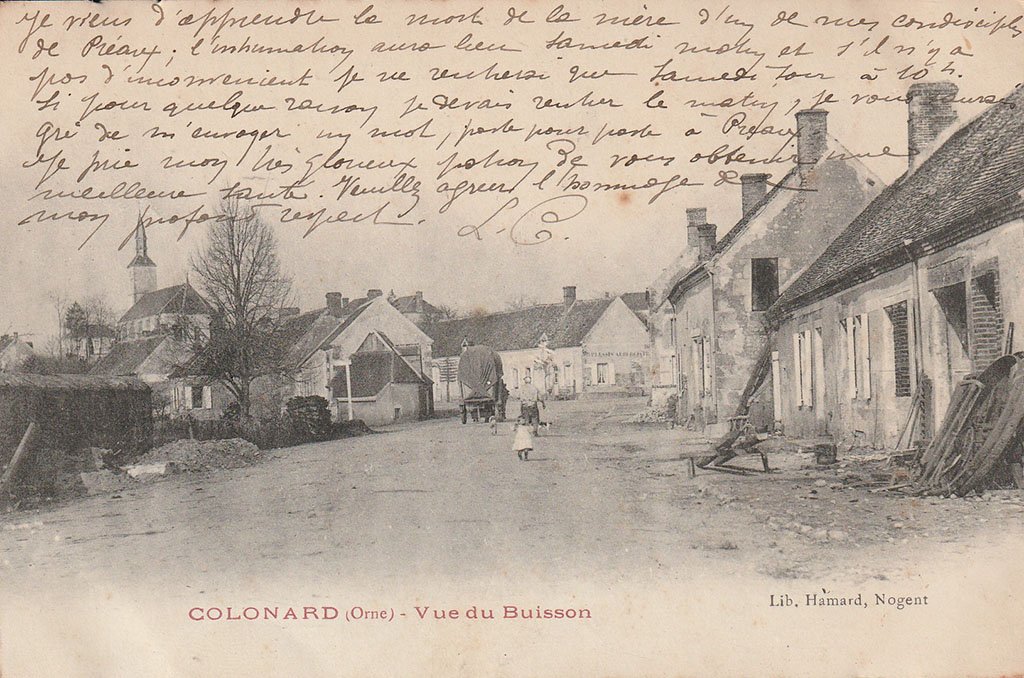 Je viens d'apprendre la mort de la mère d'un de mes condisciples
de Préaux ; l'inhumation aura lieu samedi matin et s'il n'y a
pas d'inconvénient je ne rentrerai que samedi soir à 10h.
Si pour quelque raison je devais rentrer le matin, je vous saurais
gré de m'envoyer un mot, poste pour poste à Préaux.
Je prie mon très glorieux patron de vous obtenir une
meilleure santé. Veuillez agréer l'hommage de
mon profond respect.
L. C.
PLESSIS AUBERGISTE
COLONARD (Orne) - Vue du Buisson
Lib. Hamard, Nogent